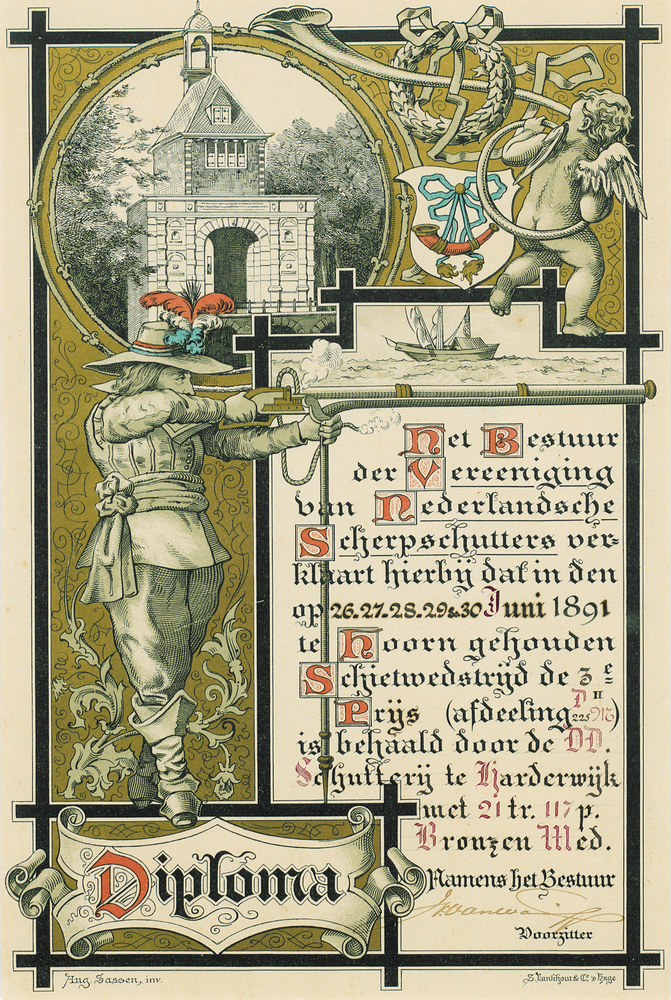 Het Bestuur
der Vereeniging
van Nederlandsche
Scherpschutters ver-
klaart hierbij dat in den
op 26.27.28.29&30 Juni 1891
te Hoorn gehouden
Schietwedstrijd de 3e
Prijs (afdeeling D II
is behaald door de DD.
Schutterij te Harderwijk
met 21 tr. 117 p.
Bronzen Med.
Namens het Bestuur
Voorzitter
Diploma
Aug. Sassen, inv.
S. Lankhout & Co. 's Hage